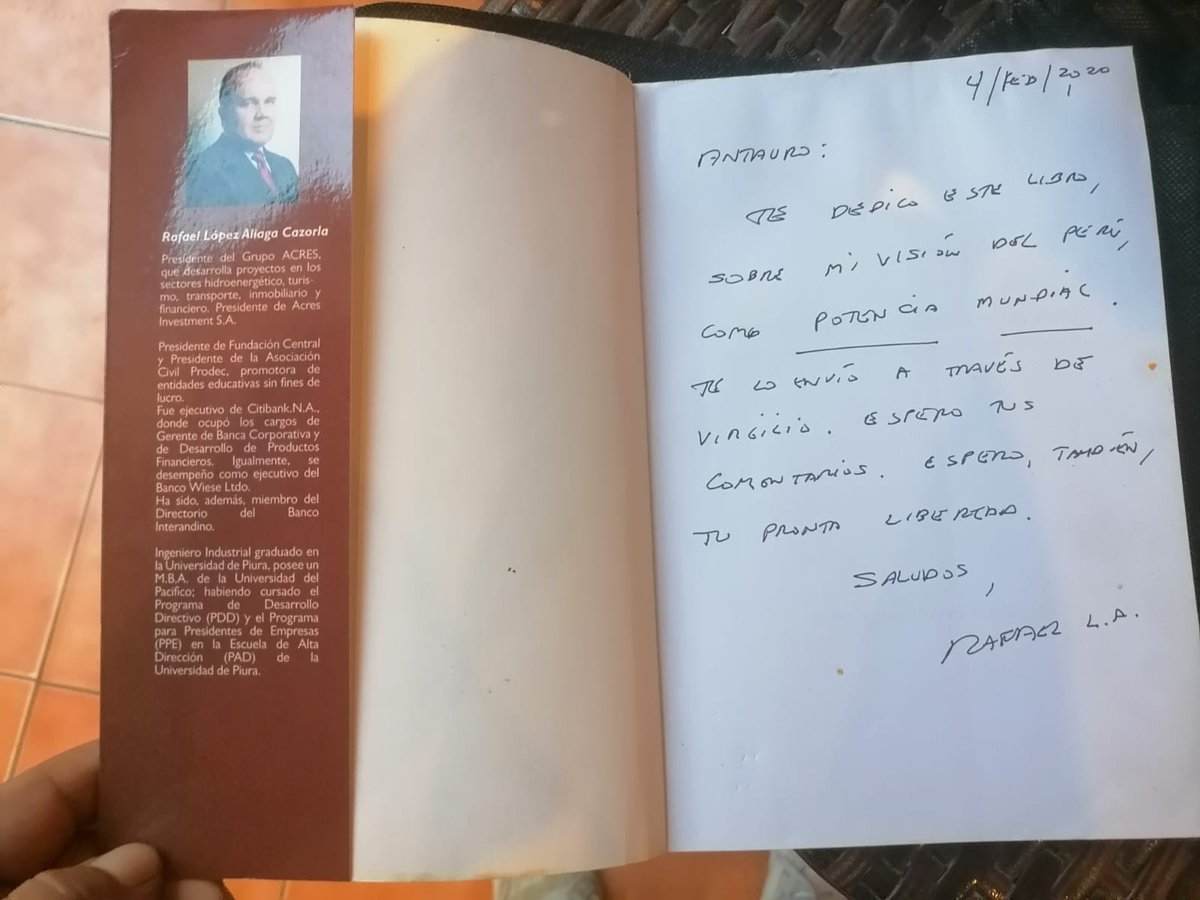 Rafael López Aliaga Cazorla
Presidente del Grupo ACRES,
que desarrolla proyectos en los
sectores hidroenergético, turis-
mo, transporte, inmobiliario y
financiero. Presidente de Acres
Investment S.A.
Presidente de Fundación Central
y Presidente de la Asociación
Civil Prodec, promotora de
entidades educativas sin fines de
lucro.
Fue ejecutivo de Citibank.N.A.,
donde ocupó los cargos de
Gerente de Banca Corporativa y
de Desarrollo de Productos
Financieros. Igualmente, se
desempeño como ejecutivo del
Banco Wiese Ltdo.
Ha sido, además, miembro del
Directorio del Banco
Interandino.
Ingeniero Industrial graduado en
la Universidad de Piura, posee un
M.B.A. de la Universidad del
Pacífico; habiendo cursado el
Programa de Desarrollo
Directivo (PDD) y el Programa
para Presidentes de Empresas
(PPE) en la Escuela de Alta
Dirección (PAD) de la
Universidad de Piura.
4/FEB/2020
ANTAURO:
TE DEDICO ESTE LIBRO,
SOBRE MI VISIÓN DEL PERÚ,
COMO POTENCIA MUNDIAL.
TE LO ENVÍO A TRAVÉS DE
VIRGILIO. ESPERO TUS
COMENTARIOS. ESPERO, TAMBIÉN,
TU PRONTA LIBERTAD.
SALUDOS,
RAFAEL L.A.